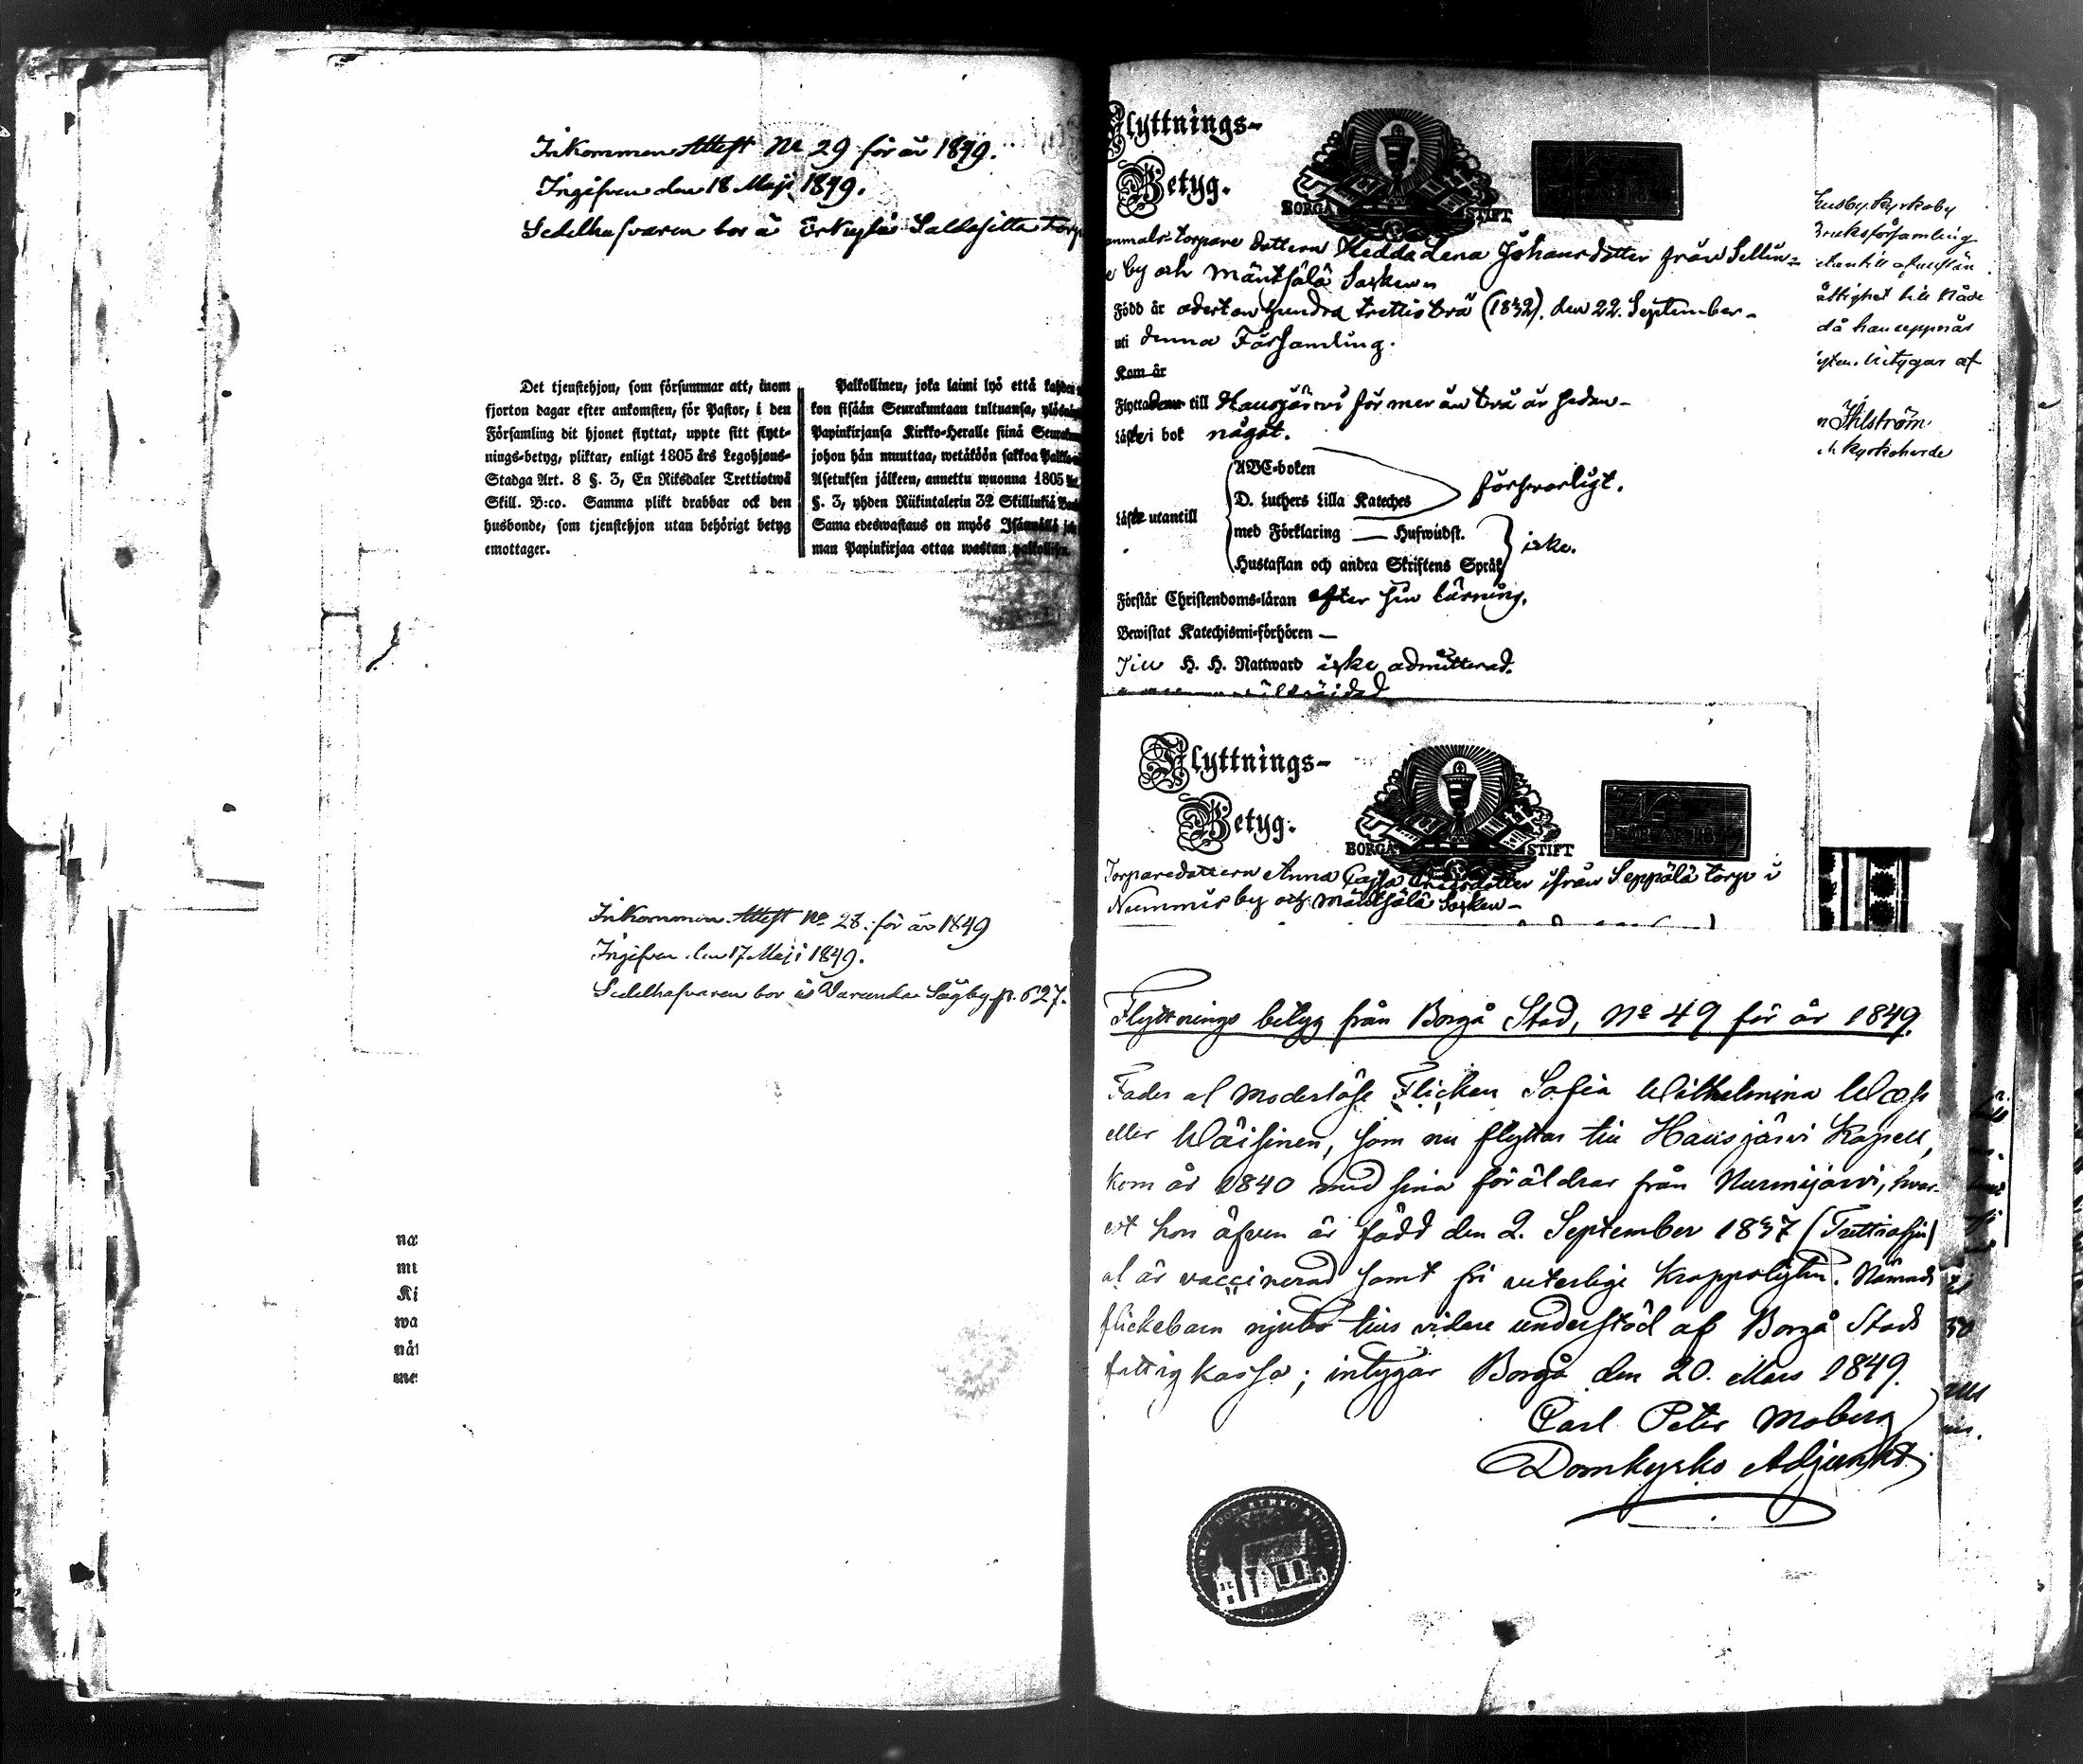 Inkommen Attest No 29 för år 1849.
Ingifven den 18 Maji 1849.
Sedelhafvaren bor å Erkylä Saldasilta Torp
Det tjenstehjon, som försummar att, inom
fjorton dagar efter ankomsten, för Pastor, i den
Församling dit hjonet flyttat, uppte sitt flytt-
nings-betyg, pliktar, enligt 1805 års Legohjons-
Stadga Art. 8 §. 3, En Riksdaler Trettiotwå
Skill. B:co. Samma plikt drabbar ock den
husbonde, som tjenstehjon utan behörigt betyg
emottager.
Palkollinen, joka laimi lyö että kahden
kon sisään Seurakuntaan tultuansa, ylös
Papinkirjansa Kirkko-Heralle siinä Seura
johon hän muuttaa, wetäköön sakkoa Palko
Asetuksen jälkeen, annettu wuonna 1805
§. 3, yhden Riikintalerin 32 Skillinkiä
Sama edeswastaus on myös Isännällä
man Papinkirjaa ottaa wastan palkollisen.
Inkommen Attest No 28. för år 1849
Ingifven den 17 Maji 1849.
Sedelhafvaren bor å Varunda Sågby p. 627.
na
mu
Ki
wa
nåt
me
Flyttnings-
Betyg.
BORGÅ STIFT
torpare dottern Hedda Lena Johansdotter från Sellin-
e by och Mäntsälä Socken
Född år adertonhundra trettiotvå (1832). den 22. September
uti denna Församling.
Kom år
Flyttade till Hausjärvi för mer än två år sedan
Läste i bok något.
ABC-boken
D. Luthers Lilla Kateches
försvarligt.
Läste utantill
med Förklaring — Hufwudst.
Hustaflan och andra Skriftens Språk
icke.
Förstår Christendoms-läran efter sin lärning.
Bewistat Katechismi-förhören —
Till H. H. Nattward icke admitterad.
Husby Kyrkoby
Bruksförsamling
då han uppnår
Intygar af
Kyrkoherde
Flyttnings-
Betyg.
BORGÅ STIFT
Torparedottern Anna Cajsa ifrån Seppälä torp i
Nummis by och Mäntsälä Socken
Flyttnings betyg från Borgå Stad, No 49 för år 1849.
Fader o/ moderlösa Flickan Sofia Wilhelmina Wass
eller Wäisinen, som nu flyttar till Hausjärvi Kapell,
kom år 1840 med sina föräldrar från Nurmijärvi, hvar-
est hon äfven är född den 2. September 1837 (Trettiosju)
o/ är vaccinerad samt fri veterliga kroppslyten. Nämnde
flickebarn njuter tills vidare understöd af Borgå Stads
fattigkassa; intygar Borgå den 20. Mars 1849.
Carl Peter Moberg
Domkyrko Adjunkt.